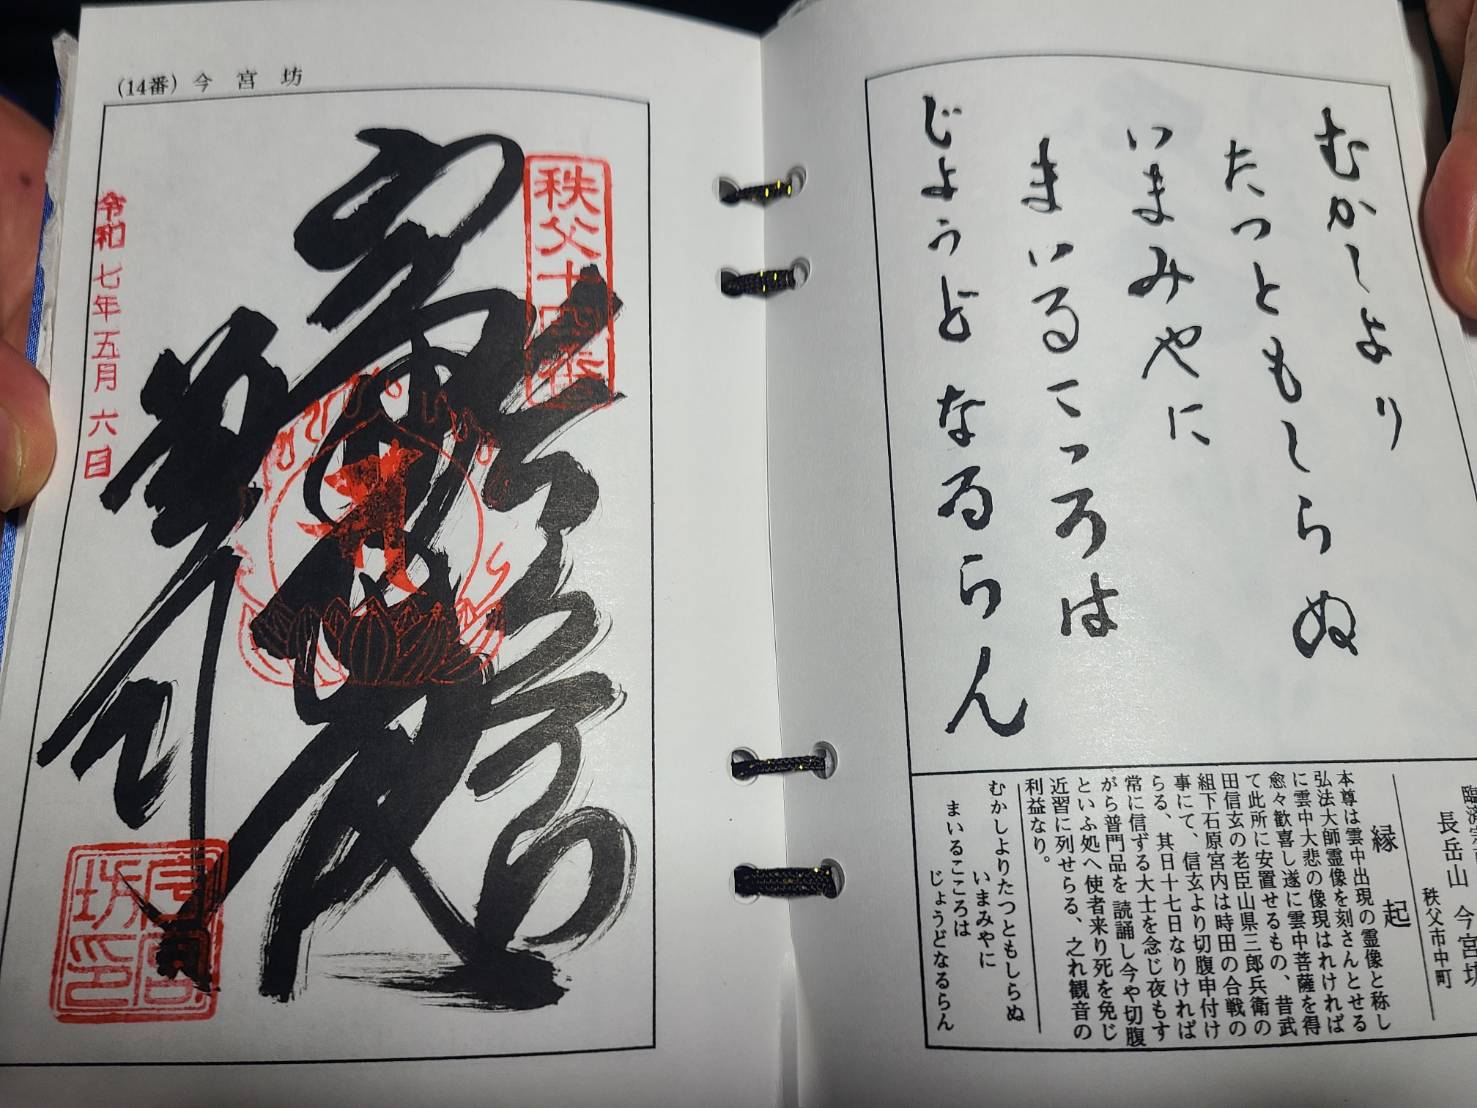 (14番) 今宮坊
秩父十四番
令和七年五月六日
今宮坊印
むかしより
たつともしらぬ
いまみやに
まいるこころは
じょうどなるらん
長岳山 今宮坊
秩父市中町
縁起
本尊は雲中出現の霊像と称し
弘法大師霊像を刻さんとせる
に雲中大悲の像現はれければ
愈々歓喜し遂に雲中菩薩を得
て此所に安置せるもの、昔武
田信玄の老臣山県三郎兵衛の
組下石原宮内は時田の合戦の
事にて、信玄より切腹申付け
らる、其日十七日なりければ
常に信ずる大士を念じ夜もす
がら普門品を読誦し今や切腹
といふ処へ使者来り死を免じ
近習に列せらる、之れ観音の
利益なり。
むかしよりたつともしらぬ
いまみやに
まいるこころは
じょうどなるらん